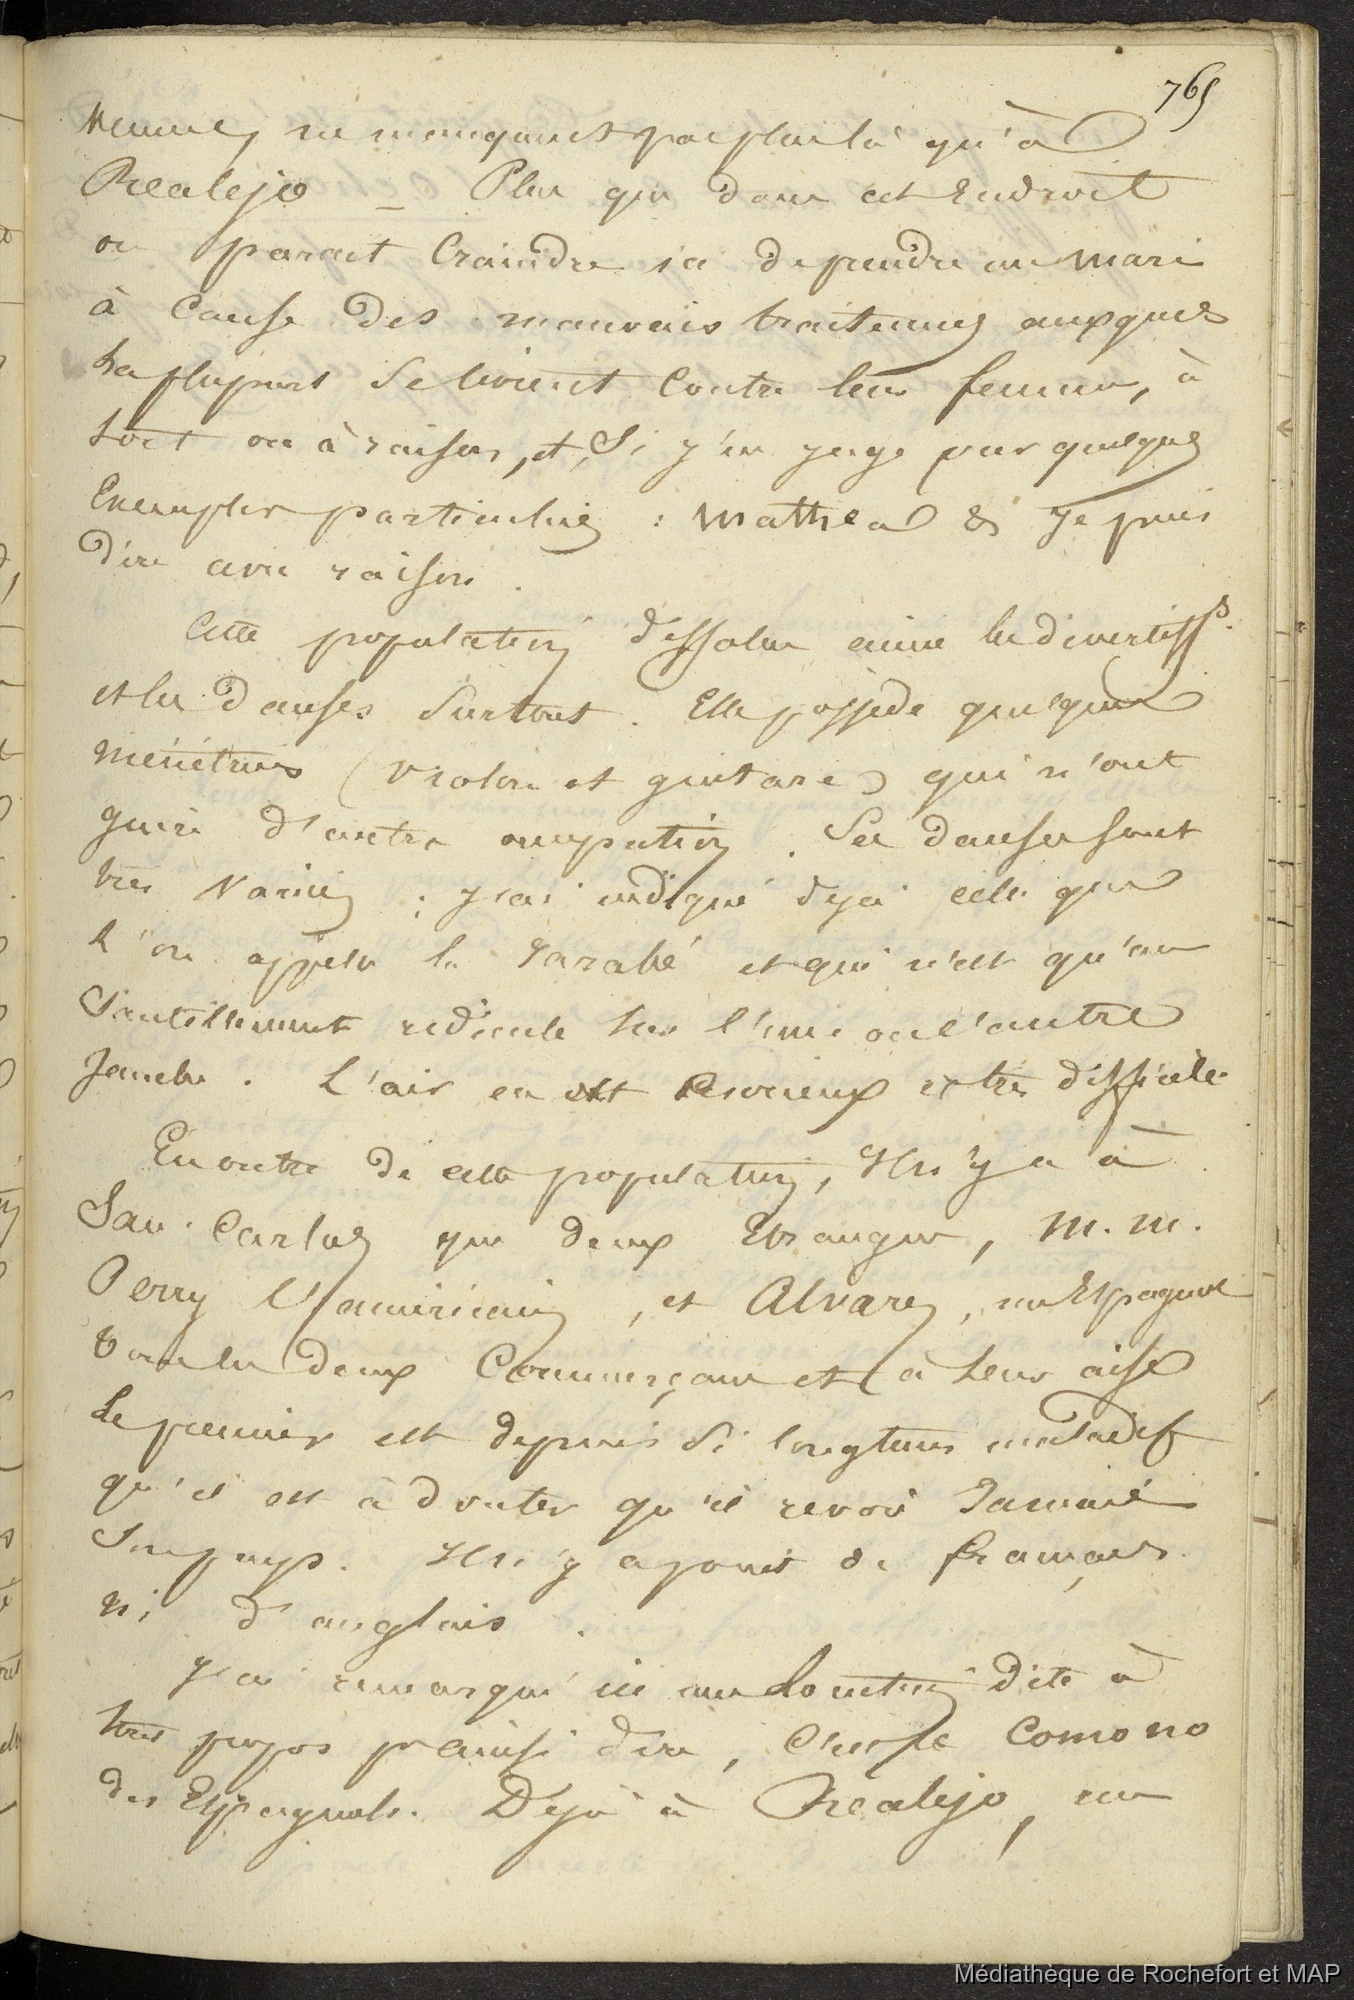 765
ne manquent pas plus là qu'à
Realejo _ Plus que dans cet Endroit
on parait Craindre ici de prendre un mari
à Cause des mauvais traitemens auxquels
la plupart se livrent Contre leurs femmes, à
tort ou à raison, et, Si j'en juge par quelques
Exemples particuliers : Mathea & Je puis
dire avec raison.
Cette population dissolue aime les divertiss.s
et les danses Surtout. Elle possede quelques
ménétriers (violon et guitare) qui n'ont
guère d'autre occupation. Ses danses sont
très Variées ; J'ai indiqué déjà celle que
l'on appele le Jarabé et qui n'est qu'un
Sautillement ridicule sur l'une ou l'autre
Jambe. L'air en est et très difficile
En outre de cette population, Il n'y a à
San-Carlos que deux Etrangers, M.M.
Perry l'américain, et Alvarez, un Espagnol
tous les deux Commerçans et à leur aise
Le premier est depuis Si longtems malade
qu'il est à douter qu'il revoie Jamais
Son pays. Il n'y a point de français
ni d'anglais.
J'ai remarqué ici une locution dite à
tous propos pr ainsi dire, C'est le Como no
des Espagnols. Déjà à Realejo, un
Médiathèque de Rochefort et MAP